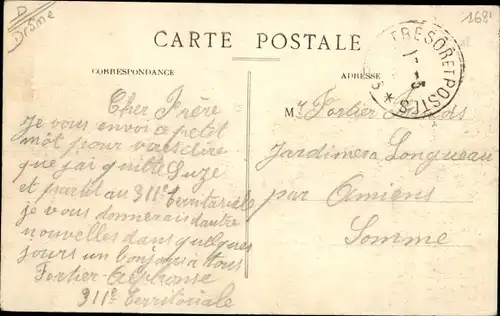 D
Drôme
168
CARTE POSTALE
TRÉSOR ET POSTES
*
CORRESPONDANCE
ADRESSE
Cher Frère
Je vous envoi ce petit
môt pour vous dire
que j'ai quitté Suze
et parent au 311e Territoriale
je vous donnerais dautre
nouvelles dans quelques
jours un bonjour à tous
Fortier Alphonse
311e Territoriale
Mr Fortier
Jardinier a Longueau
par Amiens
Somme